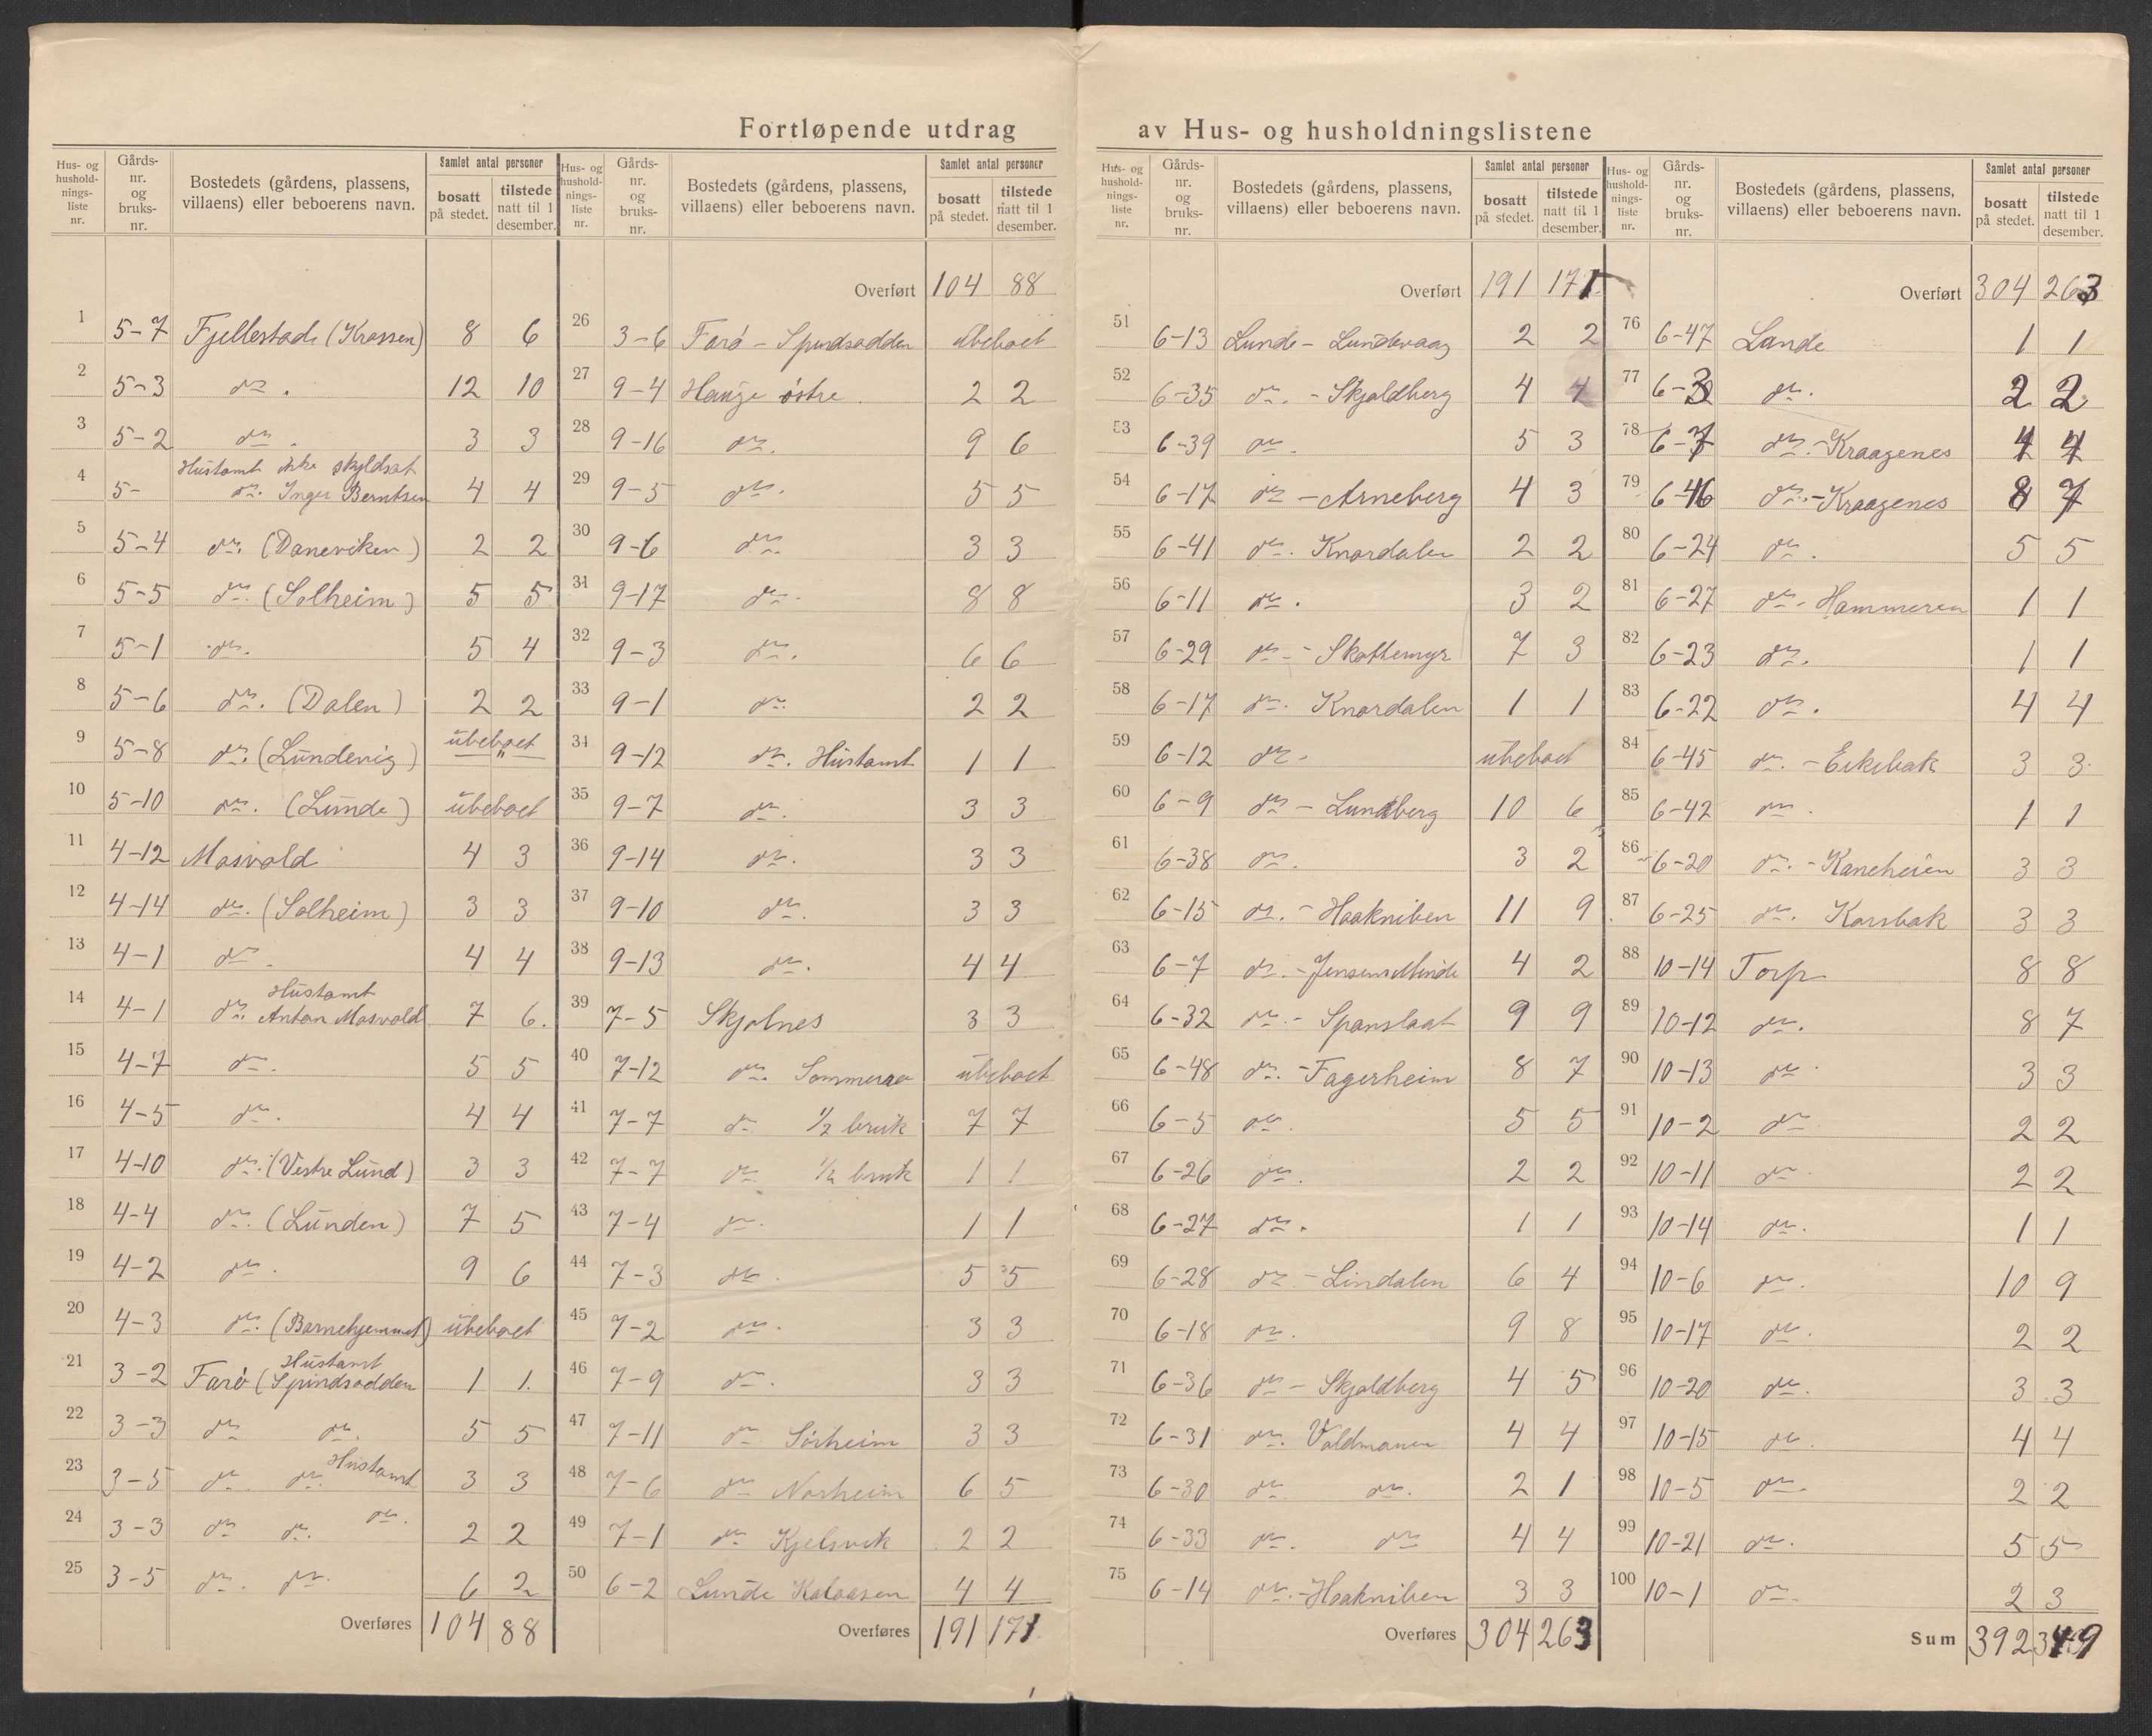 Fortløpende utdrag av Hus- og husholdningslistene
Hus- og husholdningsliste nr. | Gårds- nr. og bruks- nr. | Bostedets (gårdens, plassens, villaens) eller beboerens navn. | Samlet antal personer | bosatt på stedet. | tilstede natt til 1 desember.
1 5-7 Fjellestad (Krossen) 8 6
2 5-3 do. 12 10
3 5-2 do. 3 3
Hustomt ikke skyldsat
4 5- do. Inger Berntsen 4 4
5 5-4 do. (Daneviken) 2 2
6 5-5 do. (Solheim) 5 5
7 5-1 do. 5 4
8 5-6 do. (Dalen) 2 2
9 5-8 do. (Lundevig) ubeboet "
10 5-10 do. (Lunde) ubeboet
11 4-12 Mosvold 4 3
12 4-14 do. (Solheim) 3 3
13 4-1 do. 4 4
Hustomt
14 4-1 do. Anton Mosvold 7 6.
15 4-7 do. 5 5
16 4-5 do. 4 4
17 4-10 do. (Vestre Lund) 3 3
18 4-4 do. (Lunden) 7 5
19 4-2 do. 9 6
20 4-3 do. (Barnehjemmet) ubeboet
Hustomt
21 3-2 Farø (Spindsodden 1 1.
22 3-3 do do. 5 5
23 3-5 do do. Hustomt 3 3
24 3-3 do do. do. 2 2
25 3-5 do. do. 6 2
Overføres 104 88
Hus- og husholdningsliste nr. | Gårds- nr. og bruks- nr. | Bostedets (gårdens, plassens, villaens) eller beboerens navn. | Samlet antal personer | bosatt på stedet. | tilstede natt til 1 desember.
Overført 104 88
26 3-6 Farø - Spindsodden ubeboet
27 9-4 Hauge østre. 2 2
28 9-16 do. 9 6
29 9-5 do. 5 5
30 9-6 do. 3 3
31 9-17 do. 8 8
32 9-3 do. 6 6
33 9-1 do. 2 2
34 9-12 do. Hustomt 1 1
35 9-7 do. 3 3
36 9-14 do. 3 3
37 9-10 do. 3 3
38 9-13 do. 4 4
39 7-5 Skjolnes 3 3
40 7-12 do. Sommerro ubeboet
41 7-7 do 1/2 bruk 7 7
42 7-7 do. 1/2 bruk 1 1
43 7-4 do. 1 1
44 7-3 do. 5 5
45 7-2 do. 3 3
46 7-9 do. 3 3
47 7-11 do Sörheim 3 3
48 7-6 do Norheim 6 5
49 7-1 do Kjelsvik 2 2
50 6-2 Lunde Kalaasen 4 4
Overføres 191 171
Hus- og husholdningsliste nr. | Gårds- nr. og bruks- nr. | Bostedets (gårdens, plassens, villaens) eller beboerens navn. | Samlet antal personer | bosatt på stedet. | tilstede natt til 1 desember.
Overført 191 171
51 6-13 Lunde - Lundevaag 2 2
52 6-35 do. - Skjoldberg 4 4
53 6-39 do. 5 3
54 6-17 do - Arneberg 4 3
55 6-41 do. Knordalen 2 2
56 6-11 do. 3 2
57 6-29 do. - Skottemyr 7 3
58 6-17 do. Knordalen 1 1
59 6-12 do. ubeboet
60 6-9 do - Lundberg 10 6
61 6-38 do. 3 2
62 6-15 do. - Haakniben 11 9
63 6-7 do. - Jensens Minde 4 2
64 6-32 do. - Spanslaat 9 9
65 6-48 do. - Fagerheim 8 7
66 6-5 do. 5 5
67 6-26 do. 2 2
68 6-27 do. 1 1
69 6-28 do - Lindalen 6 4
70 6-18 do. 9 8
71 6-36 do - Skjoldberg 4 5
72 6-31 do. Voldmanen 4 4
73 6-30 do. do. 2 1
74 6-33 do. do 4 4
75 6-14 do. - Haakniben 3 3
Overføres 304 263
Hus- og husholdningsliste nr. | Gårds- nr. og bruks- nr. | Bostedets (gårdens, plassens, villaens) eller beboerens navn. | Samlet antal personer | bosatt på stedet. | tilstede natt til 1 desember.
Overført 304 263
76 6-47 Lunde 1 1
77 6-3 do. 2 2
78 6-7 do. - Kraagenes 4 4
79 6-46 do. - Kraagenes 8 7
80 6-24 do. 5 5
81 6-27 do. - Hammeren 1 1
82 6-23 do. 1 1
83 6-22 do. 4 4
84 6-45 do. - Eikebak 3 3
85 6-42 do. 1 1
86 6-20 do. - Kaneheien 3 3
87 6-25 do. Korsbak 3 3
88 10-14 Torp 8 8
89 10-12 do. 8 7
90 10-13 do. 3 3
91 10-2 do 2 2
92 10-11 do. 2 2
93 10-14 do. 1 1
94 10-6 do. 10 9
95 10-17 do. 2 2
96 10-20 do. 3 3
97 10-15 do. 4 4
98 10-5 do. 2 2
99 10-21 do. 5 5
100 10-1 do. 2 3
Sum 392 349